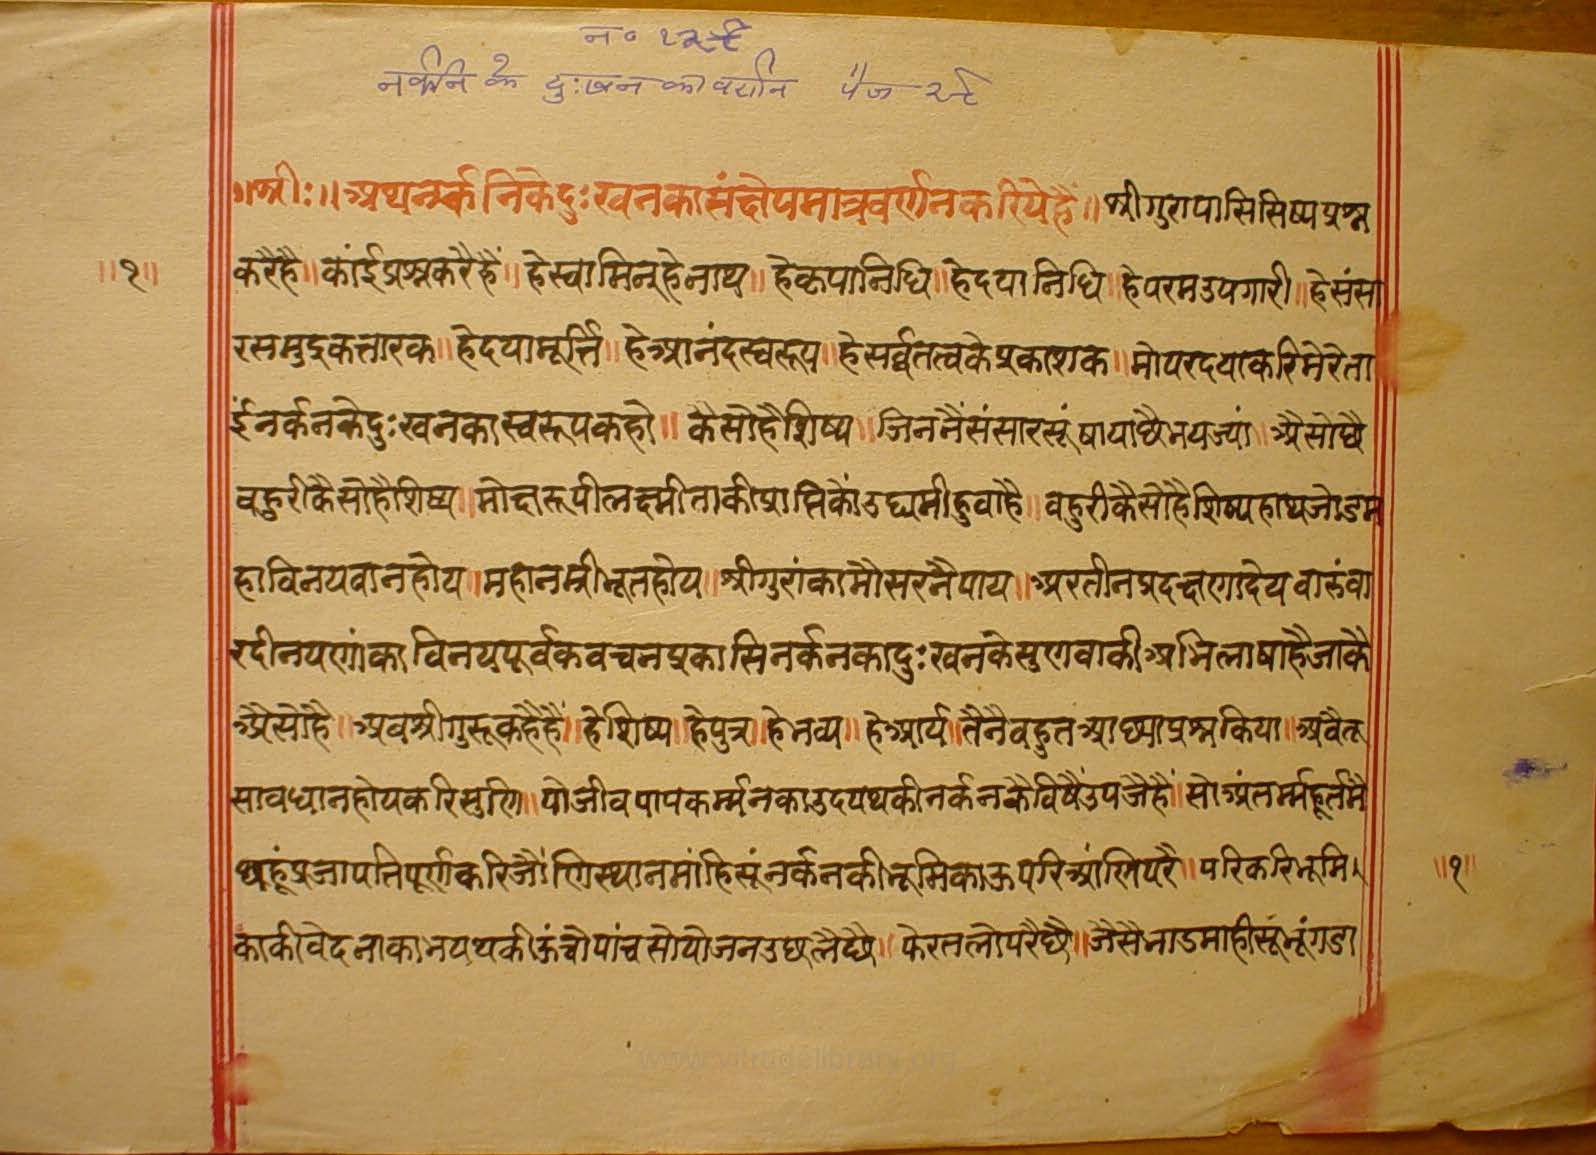 न॰ १२९
नर्कनि के दुःखन को वर्णन पैज २९
॥श्रीः॥ अथ नर्कनिके दुःखनका संक्षेपमात्र वर्णन करिये है॥ श्रीगुरापासि सिष्य प्रश्न
॥१॥
करै है॥ कांई प्रश्न करै हैं॥ हे स्वामिन् हे नाथ॥ हे कृपानिधि॥ हे दयानिधि॥ हे परमउपगारी॥ हे संसा
रसमुद्रकत्तारक॥ हे दयामूर्त्ति॥ हे आनंदस्वरूप॥ हे सर्व्वतत्वके प्रकाशक॥ मोपर दया करि मेरे ता
ईं नर्कनके दुःखनका स्वरूप कहो॥ कैसो है शिष्य॥ जिननैं संसारसूं षाया छै भय ज्यां॥ अैसो छै
बहुरी कैसो है शिष्य॥ मोक्षरूपी लक्ष्मी ताकी प्राप्तिकौं उद्यमी हुवा है॥ बहुरी कैसो है शिष्य हाथ जोड म
हाविनयवान होय॥ महानम्रीभूत होय॥ श्रीगुरांका मौसर नै पाय॥ अर तीन प्रदक्षणा देय वारुंवा
र दीनपणांका विनयपूर्वक वचन प्रकासि नर्कनका दुःखनके सुणवाकी अभिलाषा है जाकै
अैसो है॥ अब श्रीगुरू कहै हैं॥ हे शिष्य॥ हे पुत्र॥ हे भव्य॥ हे आर्य॥ तैनै बहुत आछ्या प्रश्न किया॥ अबै तू
सावधान होय करि सुणि॥ यो जीव पापकर्म्मनका उदय थकी नर्कनकै विषैं उपजै हैं॥ सो अंतर्म्मुहूर्तमै
छहूं प्रजापति पूर्ण करि जौंणिस्थान मांहिसूं नर्कनकी भूमिका ऊपरि आंणि परै॥ परि करि भूमि
॥१॥
काकी वेदनाका भय थकी ऊंचो पांचसो योजन उछलै छै॥ फेर तलो परै छै॥ जैसै भाड माहीसूं भूंगडा